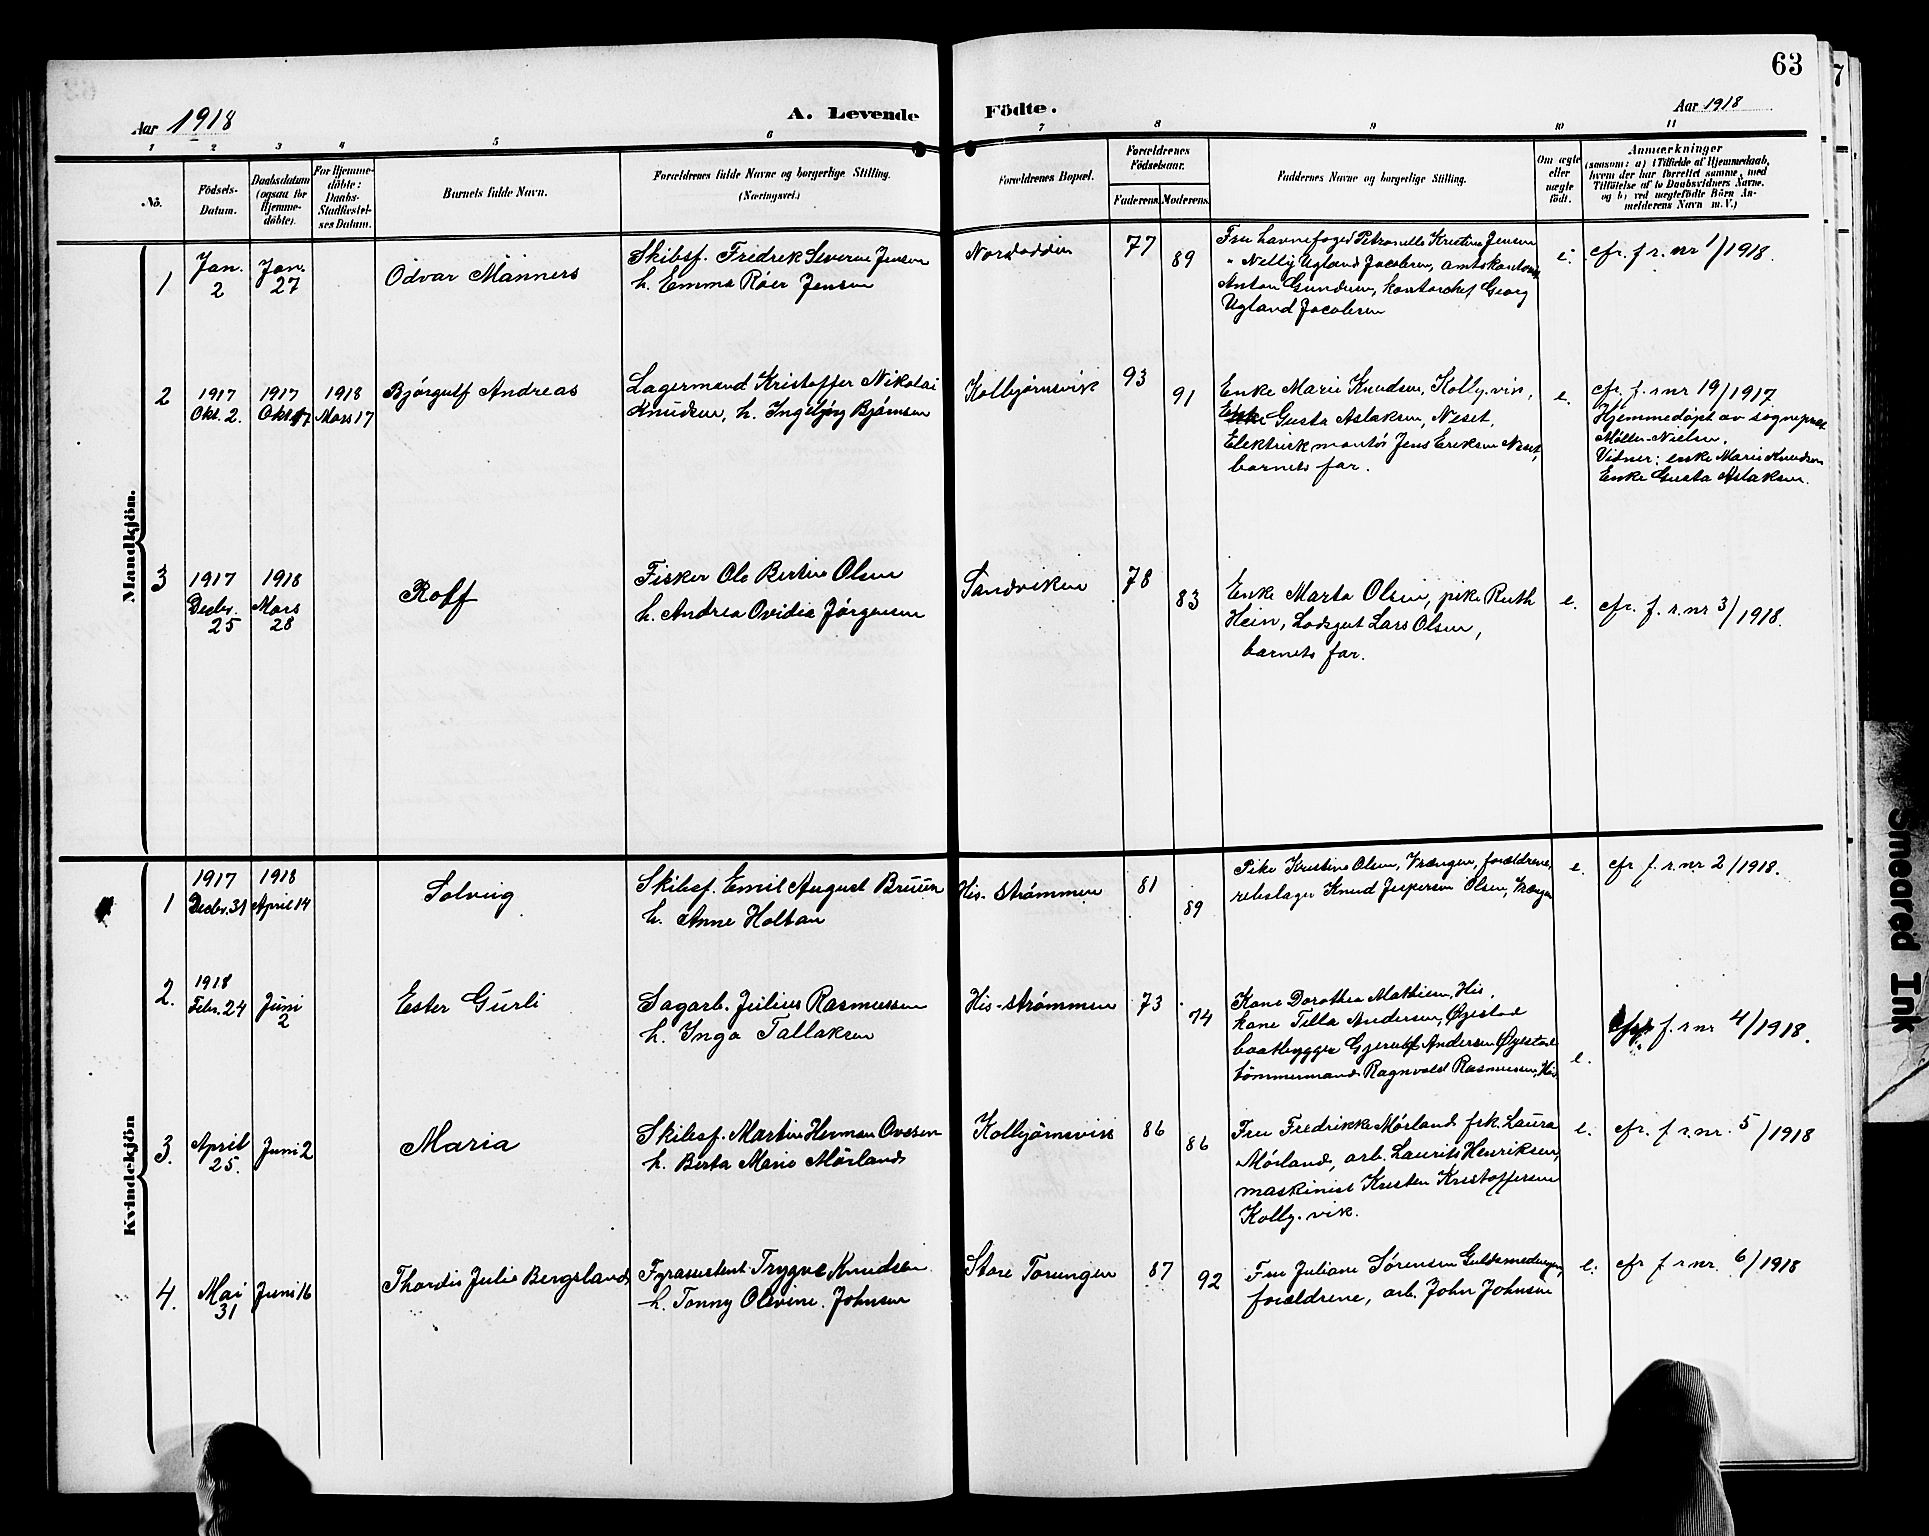 63
Aar 1918
A. Levende Födte.
Aar 1918
1 2 3 4 5 6 7 8 9 10 11
No.
Födsels-
Datum.
Daabsdatum
(ogsaa for
Hjemme-
döbte).
For Hjemme-
döbte:
Daabs-
Stadfæstel-
ses Datum.
Barnets fulde Navn.
Forældrenes fulde Navne og borgerlige Stilling.
(Næringsvei.)
Forældrenes Bopæl.
Forældrenes
Födselsaar.
Faderens. Moderens.
Faddernes Navne og borgerlige Stilling.
Om ægte
eller
uægte
födt.
Anmærkninger
(saasom: a) i Tilfælde af Hjemmedaab,
hvem der har forrettet samme, med
Tilföielse af to Daabsvidners Navne.
og b) ved uægtefödte Börn An-
melderens Navn m. V.)
Mandkjön.
1
Jan.
2
Jan.
27
Odvar Manners
Skibsf. Fredrek Severin Jensen
h. Emma Røer Jensen
Nordodden
77
89
Fru havnefoged Petronelle Kristine Jensen
" Nelly Ugland Jacobsen, amtskontorist
Anton Gundersen, kontorchef Georg
Ugland Jacobsen
e.
cfr. f. r. nr 1/1918.
2
1917
Okt. 2.
1917
Okt. 17
1918
Mars 17
Bjørgulf Andreas
Lagermand Kristoffer Nikolai
Knudsen, h. Ingebjørg Bjørnsen
Kolbjørnsvik
93
91
Enke Marie Knudsen, Kolbj.vik,
Enke Gusta Aslaksen, Neset,
Elektrisk montør Jens Eriksen Neset,
barnets far.
e.
cfr. f. r nr 19/1917
Hjemmedøpt av sogneprest
Møller-Nielsen.
Vidner: enke Marie Knudsen
Enke Gusta Aslaksen.
3
1917
Decbr.
25
1918
Mars
28
Rolf
Fisker Ole Bertin Olsen
h. Andrea Ovidia Jørgensen
Sandviken
78
83
Enke Marta Olsen, pike Ruth
Hein, Lodsgut Lars Olsen,
barnets far.
e.
cfr. f. r. nr 3/1918.
Kvindekjön
1
1917
Decbr. 31
1918
April 14
Solveig
Skibsf. Emil August Bruun
h. Anne Holtan
His-strømmen
81
89
Pike Kristine Olsen, Vrængen, forældrene,
rebslager Knud Jespersen Olsen, Vrængen
e.
cfr f. r. nr 2/1918.
2.
1918
Febr. 24
Juni
2
Ester Gurli
Sagarb. Julius Rasmussen
h. Inga Tallaksen
His-strømmen
73
74
Kone Dorothea Mathisen, His,
kone Tilla Andersen, Øiestad
baatbygger Gjerulf Andersen Øyestad
tømmermand Ragnvald Rasmussen, His
e.
cfr f. r nr 4/1918.
3.
April
25.
Juni 2
Maria
Skibsf. Martin Herman Ovesen
h. Berta Marie Mørland
Kolbjørnsvik
86
86
Fru Fredrikke Mørland frk. Laura
Mørland, arb. Laurits Henriksen,
maskinist Kristen Kristoffersen
Kolbj.vik.
e.
cfr. f r. nr. 5/1918
4.
Mai
31
Juni 16
Thordis Julie Bergsland
Fyrassistent Trygve Knudsen
h. Tonny Olevine Johnsen
Store Torungen
87
92
Fru Juliane Sørensen Guldsmedengen,
forældrene, arb. John Johnsen
e.
cfr f r nr. 6/1918
Smeared Ink